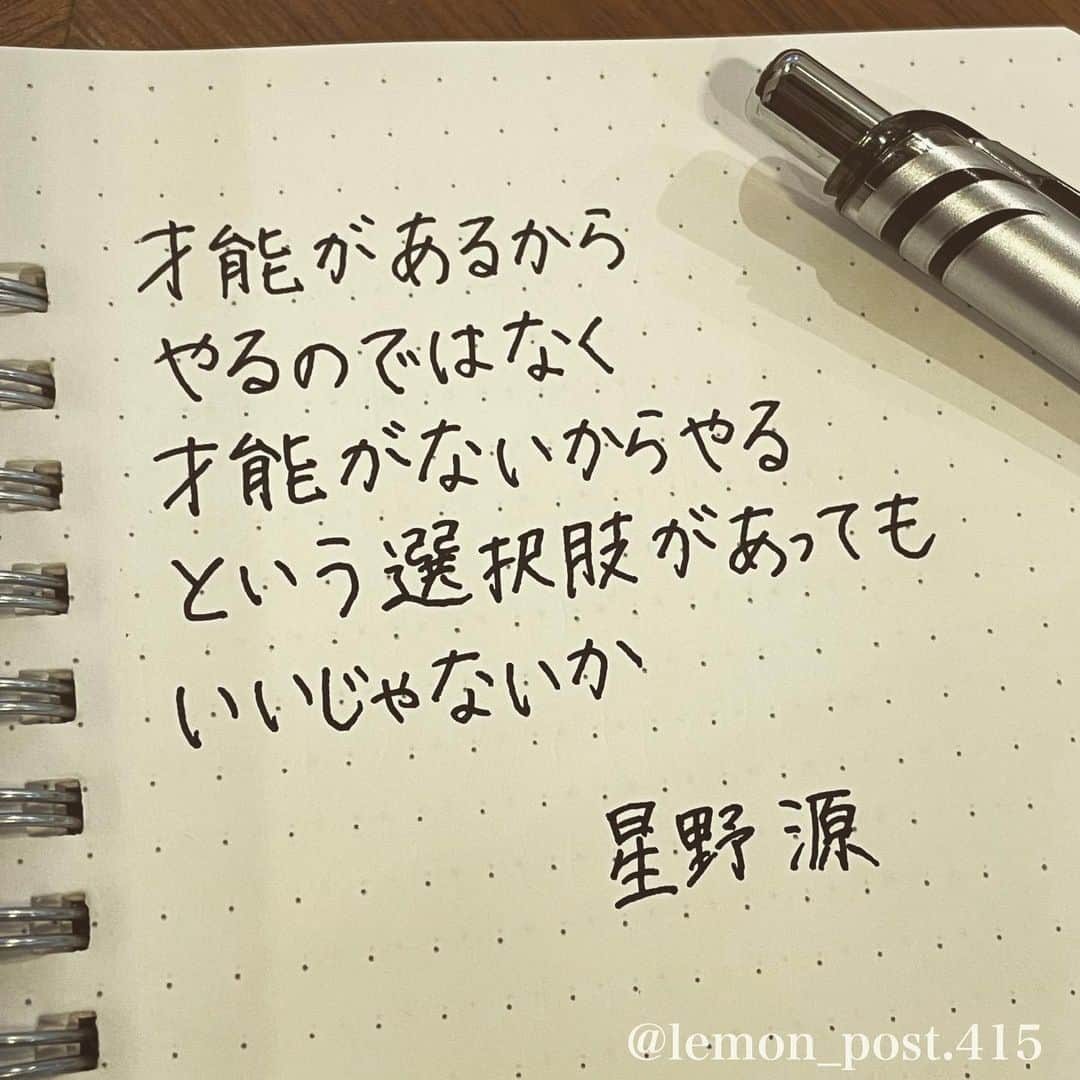 才能があるから
やるのではなく
才能がないからやる
という選択肢があっても
いいじゃないか
星野 源
@lemon_post.415